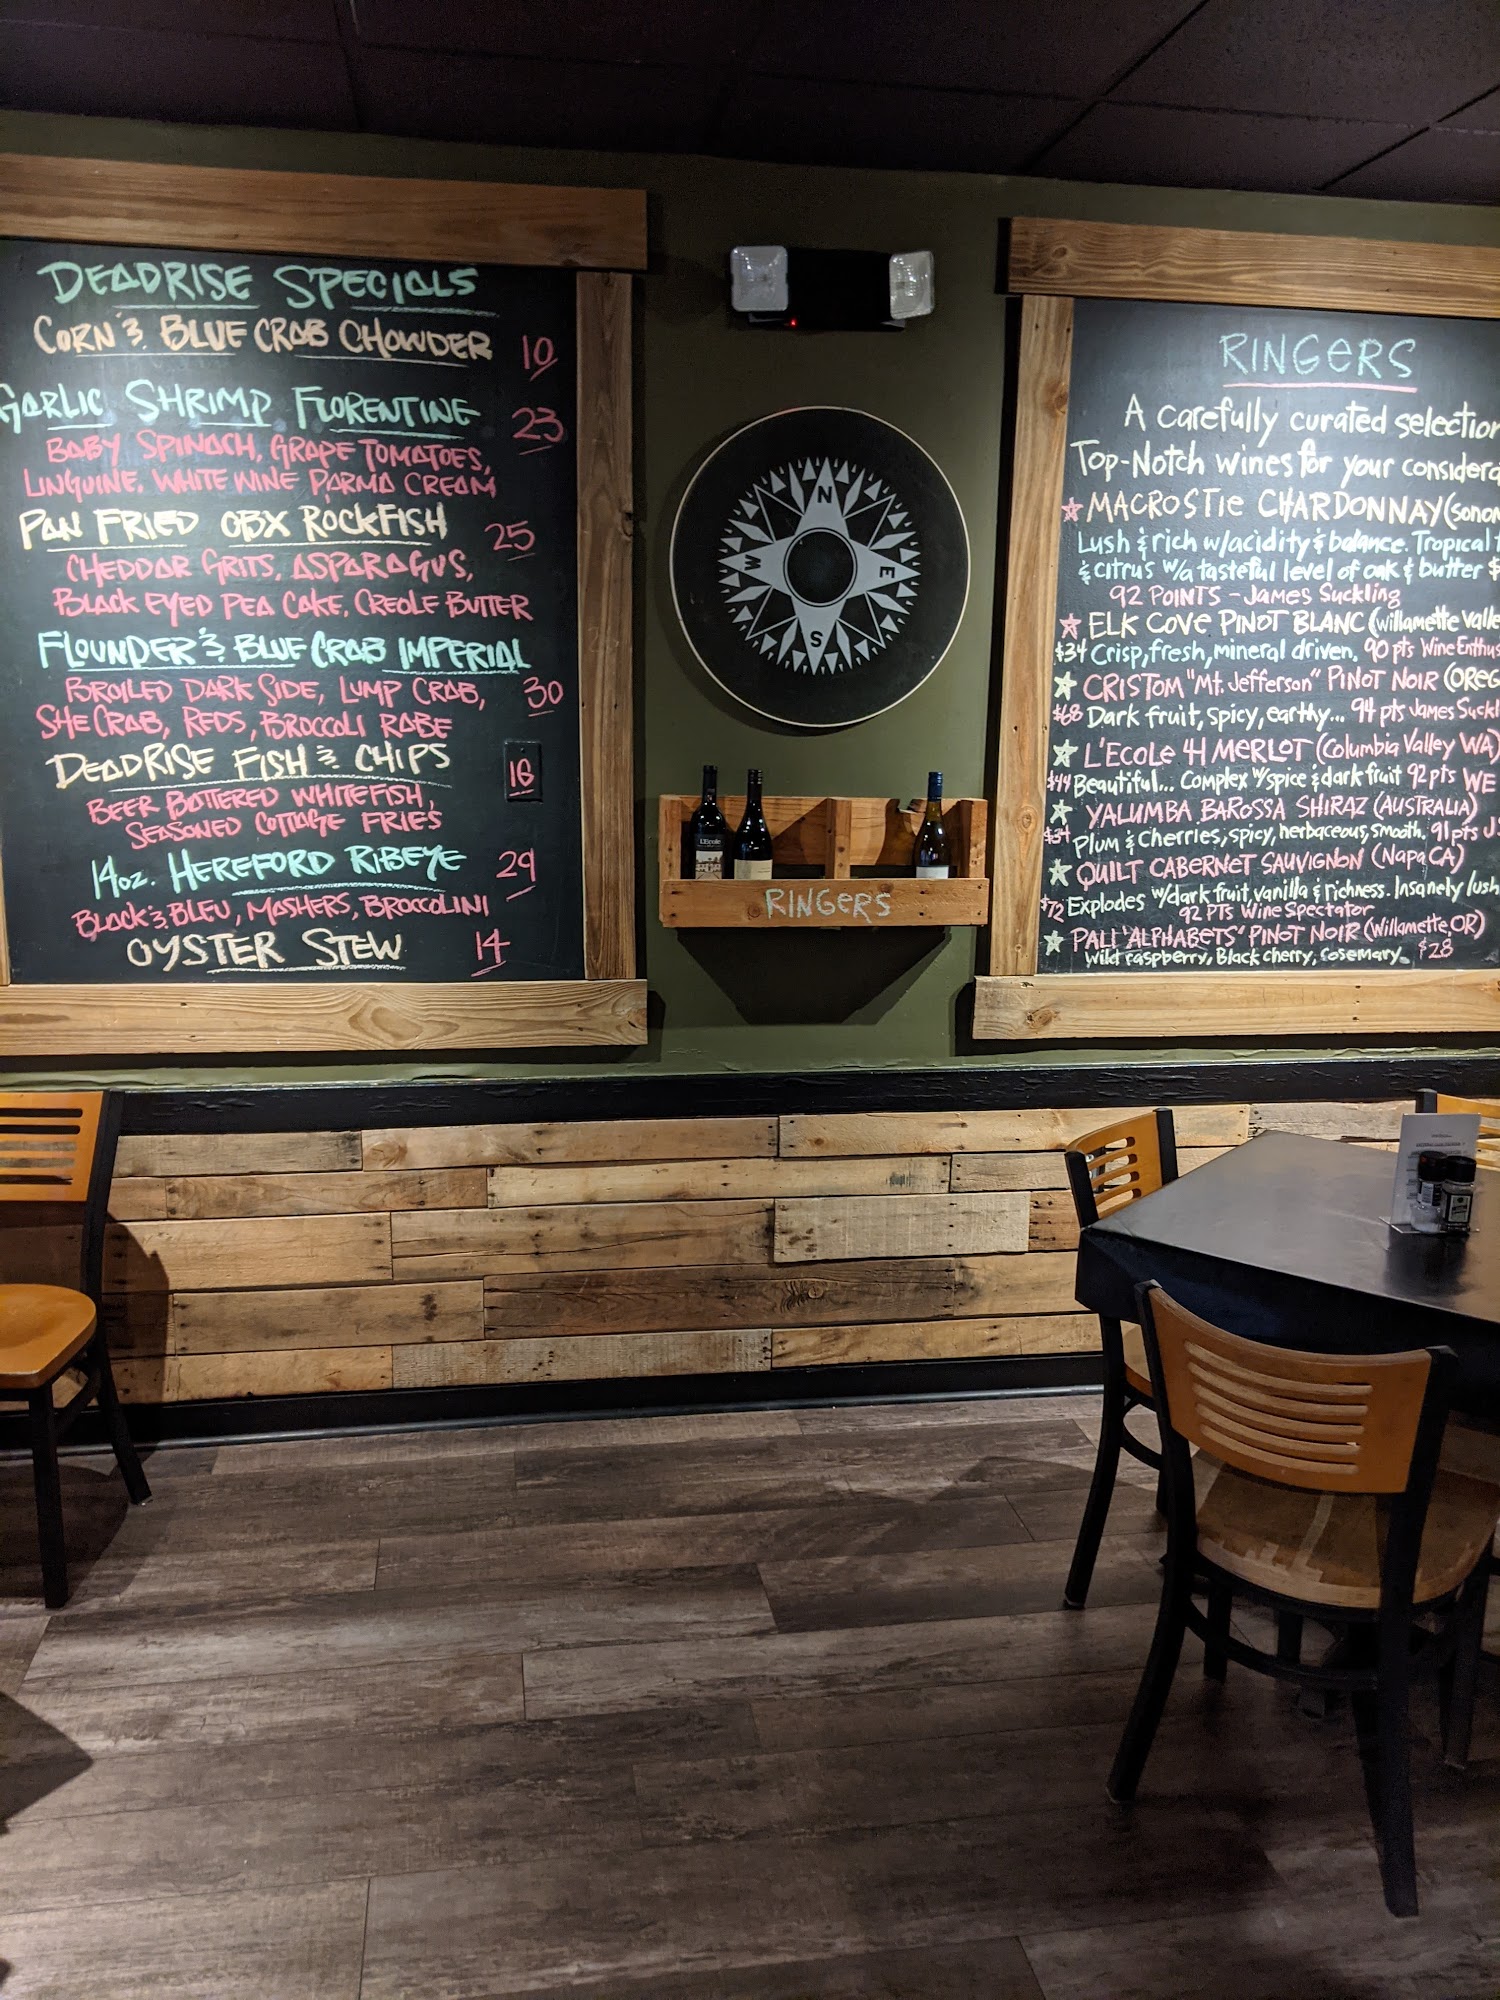 DEADRISE SPECIALS
CORN & BLUE CRAB CHOWDER 10
GARLIC SHRIMP FLORENTINE 23
BABY SPINACH, GRAPE TOMATOES,
LINGUINE, WHITE WINE PARMA CREAM
PAN FRIED OBX ROCKFISH 25
CHEDDAR GRITS, ASPARAGUS,
BLACK EYED PEA CAKE, CREOLE BUTTER
FLOUNDER & BLUE CRAB IMPERIAL
BROILED DARK SIDE, LUMP CRAB, 30
SHE CRAB, REDS, BROCCOLI RABE
DEADRISE FISH & CHIPS 16
BEER BATTERED WHITEFISH,
SEASONED COTTAGE FRIES
14oz. HEREFORD RIBEYE 29
BLACK & BLEU, MASHERS, BROCCOLINI
OYSTER STEW 14
N
E
S
W
L'Ecole
RINGERS
RINGERS
A carefully curated selection
Top-Notch wines for your considera
MACROSTIE CHARDONNAY (sonom
Lush & rich w/acidity & balance. Tropical f
& citrus w/a tasteful level of oak & butter $
92 POINTS - James Suckling
ELK COVE PINOT BLANC (willamette valle
$34 Crisp, fresh, mineral driven. 90 pts Wine Enthus
CRISTOM "Mt. Jefferson" PINOT NOIR (OREG
$68 Dark fruit, spicy, earthy... 94 pts James Suckl
L'ECOLE 41 MERLOT (Columbia Valley WA)
$44 Beautiful... Complex w/spice & dark fruit 92 pts WE
YALUMBA BAROSSA SHIRAZ (AUSTRALIA)
$34 Plum & Cherries, spicy, herbaceous, smooth. 91 pts J.
QUILT CABERNET SAUVIGNON (Napa CA)
$72 Explodes w/dark fruit, vanilla & richness. Insanely lush
92 PTS Wine Spectator
PALI 'ALPHABETS' PINOT NOIR (Willamette, OR)
Wild raspberry, Black cherry, rosemary. $28